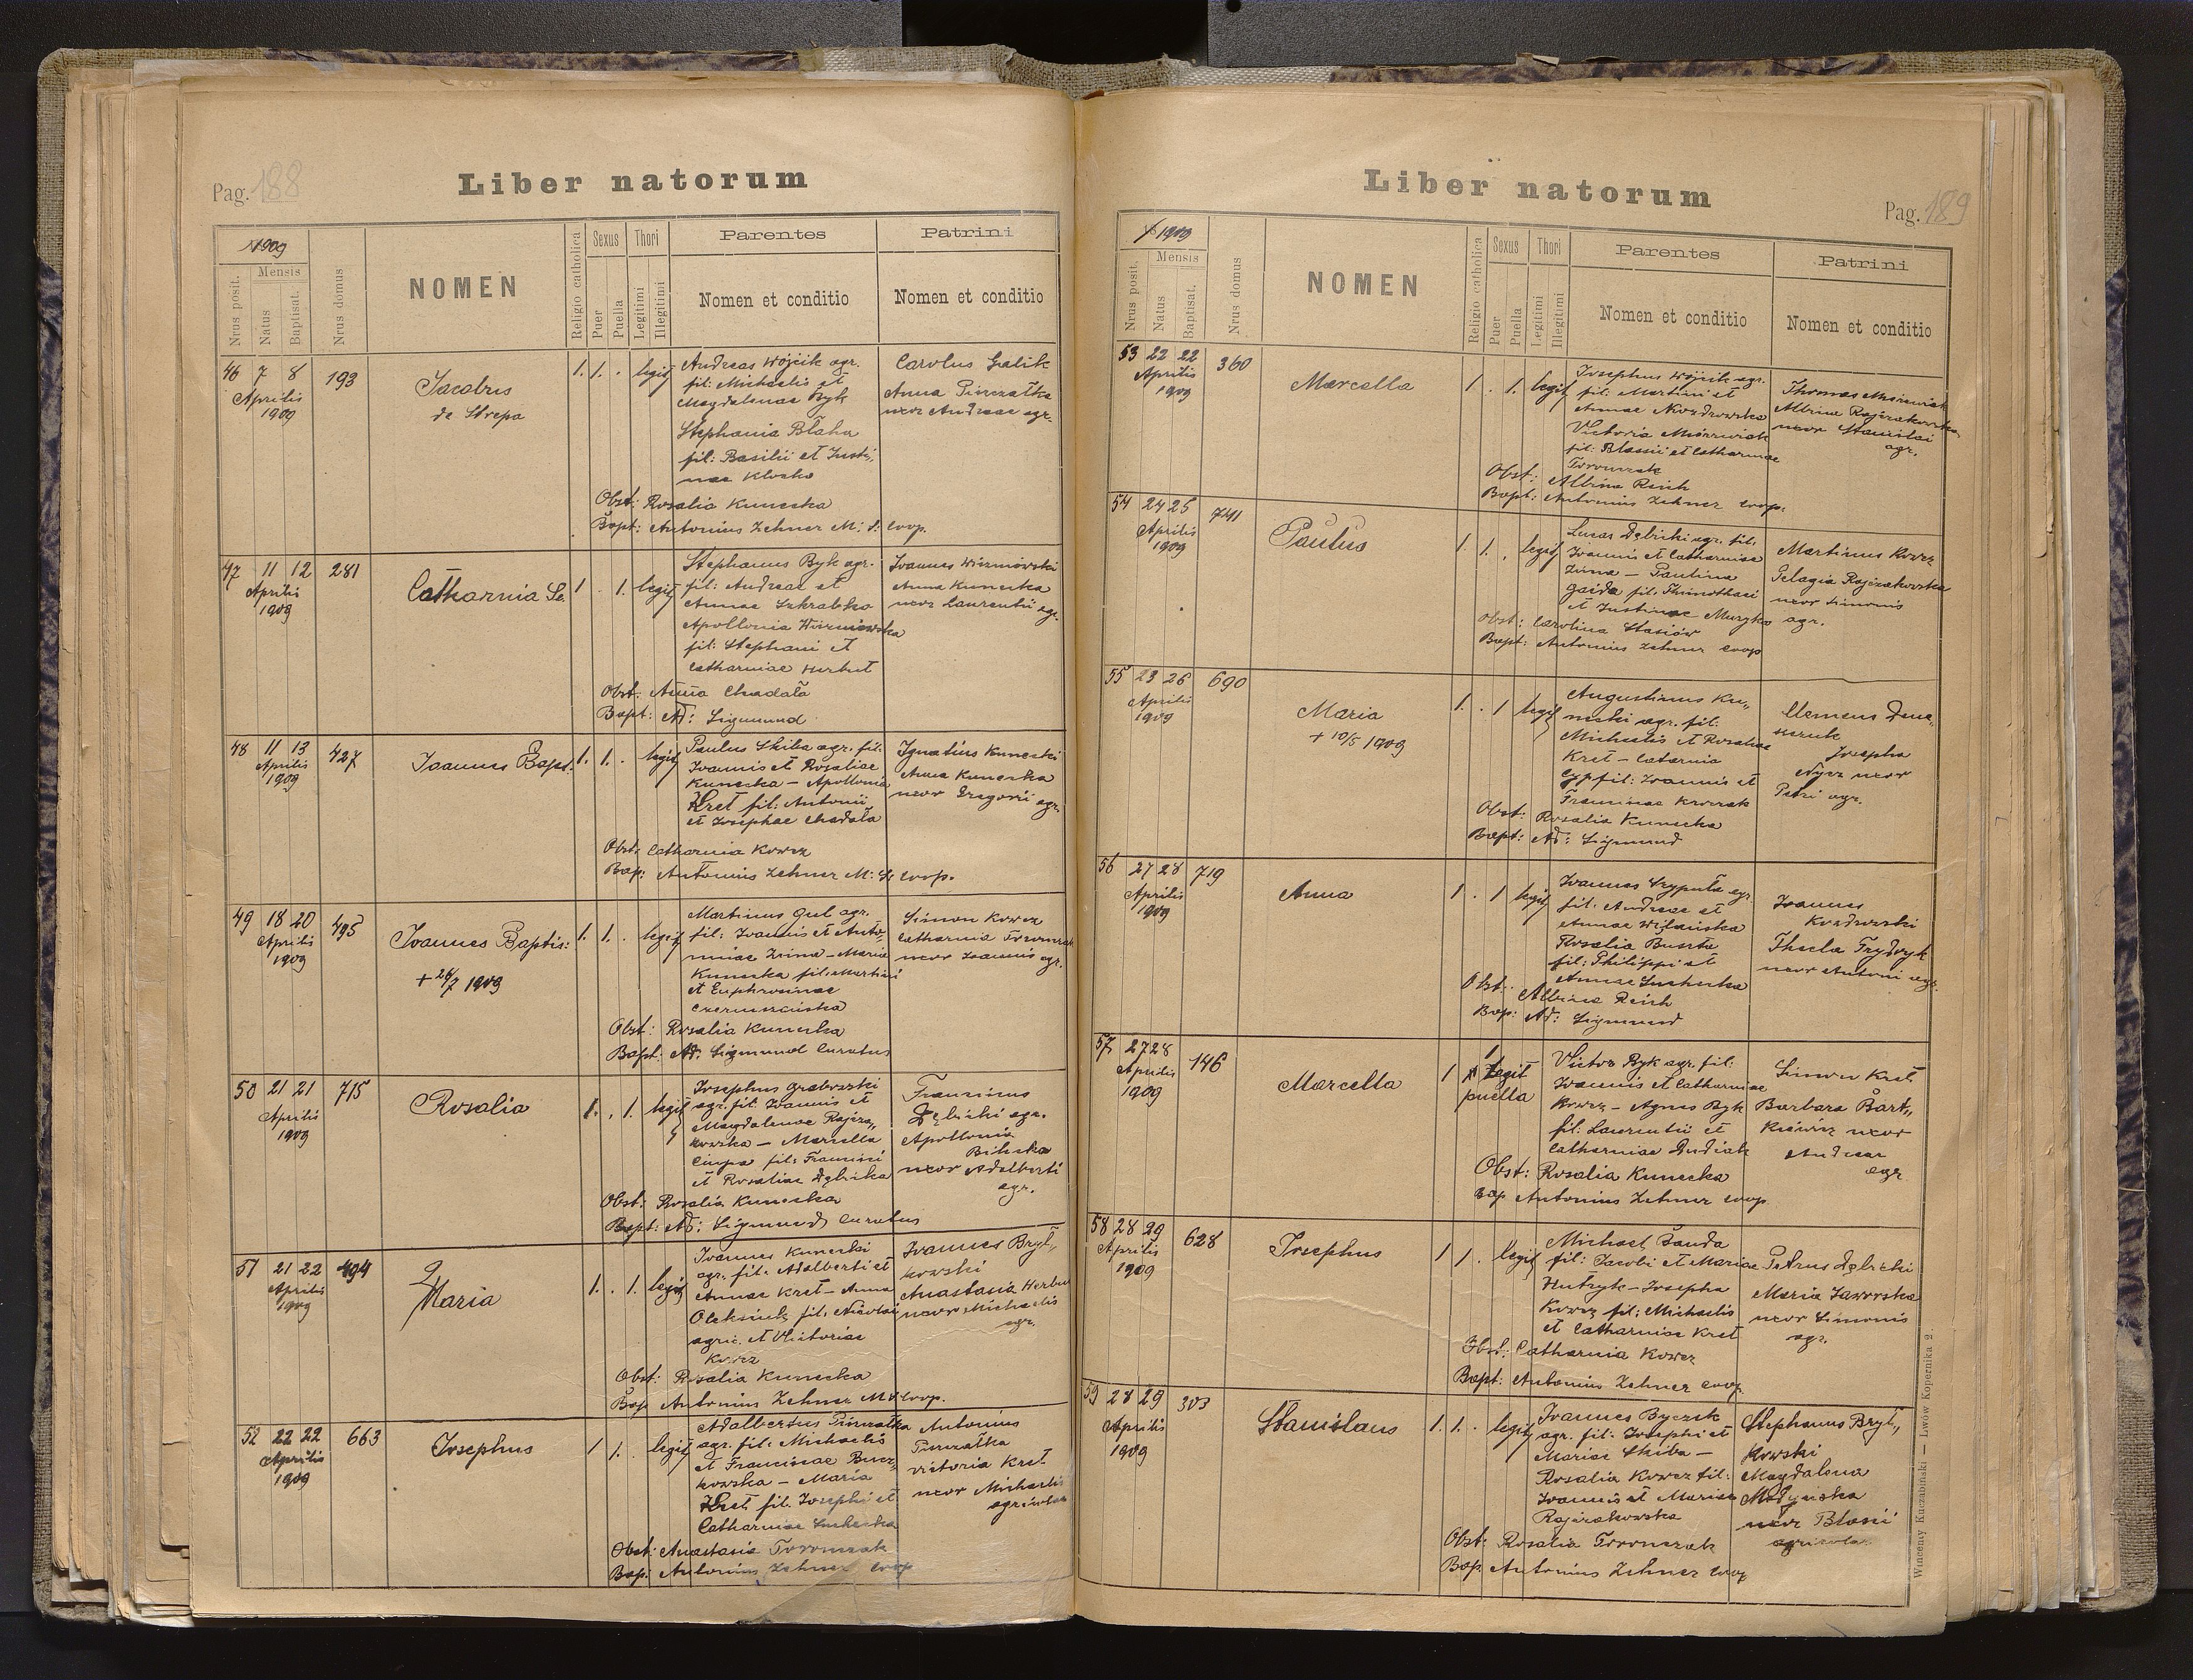 Pag. 188
Liber natorum
1909
Nrus posit.
Mensis
Natus
Baptisat.
Nrus domus
NOMEN
Religio catholica
Sexus
Puer
Puella
Thori
Legitimi
Illegitimi
Parentes
Nomen et conditio
Patrini
Nomen et conditio
46 7 8 193
Aprilis
1909
Jacobus
de Strepa
1. 1. . legit
Andreas Wójcik agr.
fil: Michaelis et
Magdalenae Byk
Stephania Błaha
fil: Basilii et Justi,,
nae Klocko
Carolus Galik
Anna Pinczałka
uxor Andreae agr.
Obst: Rosalia Kunecka
Bapt: Antonius Zehner M: S. coop.
47 11 12 281
Aprilis
1909
Catharnia Se
1 . 1. legit
Stephanus Byk agr.
fil: Andreae et
Annae
Apollonia Wiszniewska
fil: Stephani et
Catharniae Herbut
Joannes Wiszniowski
Anna Kunecka
uxor Laurentii agr.
Obst: Anna Chadała
Bapt: Ad: Sigmund
48 11 13 427
Aprilis
1909
Joannes Bapt.
1. 1. . legit
Paulus Skiba agr. fil:
Joannis et Rosaliae
Kunecka – Apollonia
Kret fil: Antonii
et Josephae Chadała
Ignatius Kunecki
Anna Kunecka
uxor Gregorii agr.
Obst: Catharnia Kowcz
Bap: Antonius Zehner M: S. coop.
49 18 20 495
Aprilis
1909
Joannes Baptis:
+ 26/7 1909
1. 1. . legit
Martinus Gul agr.
fil: Joannis et Anto,,
niae Zrina – Maria
Kunecka fil: Martini
et Euphrosinae
Simon Kowcz
Catharnia Toronczak
uxor Joannis agr.
Obst: Rosalia Kunecka
Bapt: Ad: Sigmund Curatus
50 21 21 715
Aprilis
1909
Rosalia
1. . 1. legit
Josephus Grabowski
agr. fil: Joannis et
Magdalenae Rajcza,,
kowska – Marcella
Ciupa fil: Francisci
et Rosaliae Dębicka
Franciscus
Dębicki agr.
Apollonia
Bilecka
uxor Adalberti
agr.
Obst: Rosalia Kunecka
Bapt: Ad: Sigmund Curatus
51 21 22 494
Aprilis
1909
Maria
1. . 1. legit
Joannes Kunecki
agr. fil: Adalberti et
Annae Kret – Anna
Oleksiuk fil: Nicolai
agric. et Victoriae
Kowcz
Joannes Bryl,,
kowski
Anastasia Herbut
uxor Michaelis
agr.
Obst: Rosalia Kunecka
Bap Antonius Zehner M S coop.
52 22 22 663
Aprilis
1909
Josephus
1 1. . legit
Adalbertus Pinczałka
agr. fil: Michaelis
et Franciscae Bucz,,
kowska – Maria
Kret fil: Josephi et
Catharniae Suchecka
Antonius
Pinczałka
Victoria Kret
uxor Michaelis
agricolae
Obst: Anastasia Toronczak
Bap: Antonius Zehner coop
Liber natorum
Pag. 189
1909
Nrus posit.
Mensis
Natus
Baptisat.
Nrus domus
NOMEN
Religio catholica
Sexus
Puer
Puella
Thori
Legitimi
Illegitimi
Parentes
Nomen et conditio
Patrini
Nomen et conditio
53 22 22 360
Aprilis
1909
Marcella
1 . 1. legit
Josephus Wójcik agr.
fil: Martini et
Annae
Victoria
fil: Blasii et Catharniae
Toronczak
Thomas
Albina Rajczakowska
uxor Stanislai
agr.
Obst: Albina Reich
Bapt: Antonius Zehner coop.
54 24 25 741
Aprilis
1909
Paulus
1. 1. . legit
Lucas Dębicki agr. fil.
Joannis et Catharniae
Zrina – Paulina
Gajda fil.
et Justinae Muzyka
Martinus Kowcz
Pelagia Rajczakowska
uxor Simonis
agr.
Obst: Carolina Stasiów
Bapt: Antonius Zehner coop
55 23 26 690
Aprilis
1909
Maria
+ 10/5 1909
1. . 1 legit
Augustinus Ku,,
necki agr. fil:
Michaelis et Rosaliae
Kret – Catarnia
Cyp fil: Joannis et
Franciscae
Clemens
Josepha
Nycz uxor
Petri agr.
Obst: Rosalia Kunecka
Bapt: Ad: Sigmund
56 27 28 719
Aprilis
1909
Anna
1 . 1 legit
Joannes Szypuła agr.
fil: Andreae et
Annae
Rosalia
fil: Philippi et
Annae Suchecka
Joannes
Thecla Frydryk
uxor Antonii agr.
Obst: Albina Reich
Bap: Ad: Sigmund
57 27 28 146
Aprilis
1909
Marcella
1 1 legit
puella
Victor Byk agr. fil:
Joannis et Catharniae
Kowcz – Agnes Byk
fil: Laurentii et
Catharniae Dudiak
Simon Kret
Barbara Bart,,
kiewicz uxor
Andreae
agr
Obst: Rosalia Kunecka
Bap Antonius Zehner coop
58 28 29 628
Aprilis
1909
Josephus
1 1 . legit
Michael Banda
fil: Jacobi et Mariae
Hutryk – Josepha
Kowcz fil: Michaelis
et Catharniae Kret
Petrus Dębicki
Maria Jaworska
uxor Simonis
agr.
Obst: Catharnia Kowcz
Bapt: Antonius Zehner coop.
59 28 29 303
Aprilis
1909
Stanislaus
1. 1. . legit
Joannes Byczek
agr. fil: Josephi et
Mariae Skiba –
Rosalia Kowcz fil:
Joannis et Mariae
Rajczakowska
Stephanus Bryl,,
kowski
Magdalena
uxor Blasii
agricolae
Obst: Rosalia Toronczak
Bap. Antonius Zehner coop
Wincenty Kuczabiński — Lwów Kopernika 2.